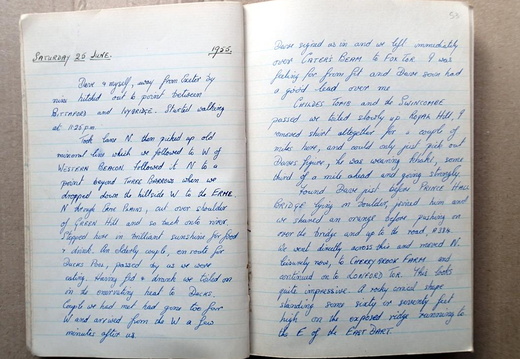 SATURDAY 25 JUNE. 1955.
Dave & myself, away from Exeter by
nine hitched out to point between
BITTAFORD and IVYBRIDGE. Started walking
at 11.25 pm.
Took lane N. then picked up old
mineral line which we followed to W of
WESTERN BEACON followed it N to a
point beyond THREE BARROWS when we
dropped down the hillside W to the ERME.
N through ERME PLAINS, cut over shoulder
of GREEN HILL and so back onto river.
Stopped here in brilliant sunshine for food
& drink. An elderly couple, en route for
DUCKS POOL, passed by as we were
eating. Having fed & drunk we toiled on
in the enervating heat to DUCKS.
Couple we had met had gone too far
W and arrived from the W a few
minutes after us.
Dave signed us in and we left immediately
over CATERS BEAM to FOX TOR. I was
feeling far from fit and Dave soon had
a good lead over me
CHILDES TOMB and the SWINCOMBE
passed we toiled slowly up ROYAL HILL, I
removed shirt altogether for a couple of
miles here, and could only just pick out
Daves figure, he was wearing khaki, some
third of a mile ahead and going strongly.
Found Dave just before PRINCE HALL
BRIDGE lying on boulder, joined him and
we shared an orange before pushing on
over the bridge and up to the road, A384.
We went directly across this and moved N.
leisurely now, to CHERRYBROOK FARM and
continued on to LONGFORD TOR. This looks
quite impressive. A rocky conical shape
standing some sixty or seventy feet
high on the exposed ridge running to
the E of the EAST DART.